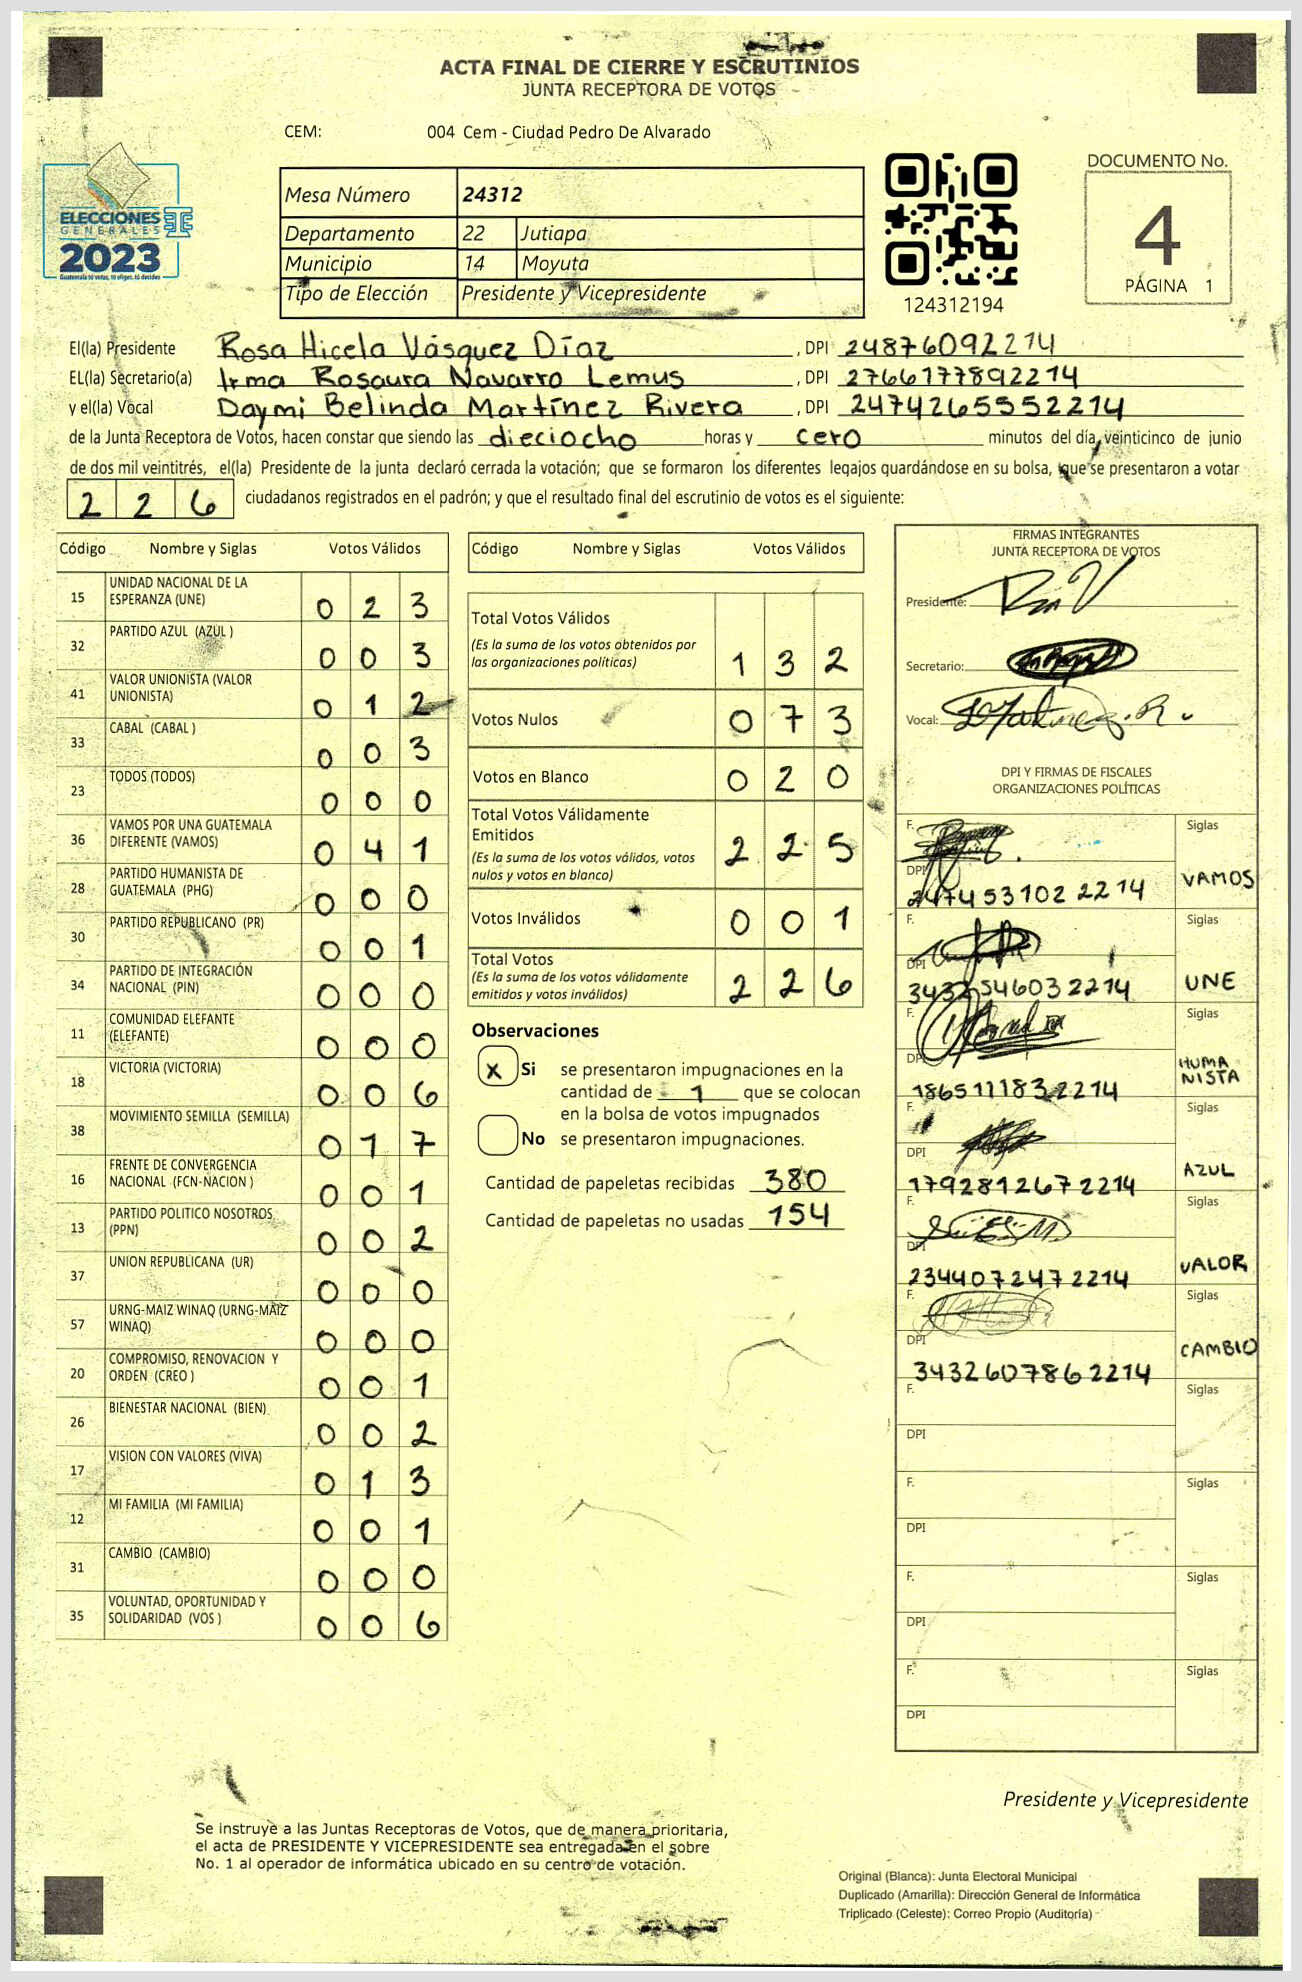 ACTA FINAL DE CIERRE Y ESCRUTINIOS
JUNTA RECEPTORA DE VOTOS
CEM: 004 Cem - Ciudad Pedro De Alvarado
ELECCIONES
GENERALES
2023
Guatemala tú votas, tú eliges, tú decides
Mesa Número 24312
Departamento 22 Jutiapa
Municipio 14 Moyuta
Tipo de Elección Presidente y Vicepresidente
124312194
DOCUMENTO No.
4
PÁGINA 1
El(la) Presidente Rosa Hicela Vásquez Díaz, DPI 24876092214
EL(la) Secretario(a) Irma Rosaura Navarro Lemus, DPI 2766177892214
y el(la) Vocal Daymi Belinda Martínez Rivera, DPI 2474265552214
de la Junta Receptora de Votos, hacen constar que siendo las dieciocho horas y cero minutos del día, veinticinco de junio
de dos mil veintitrés, el(la) Presidente de la junta declaró cerrada la votación; que se formaron los diferentes legajos guardándose en su bolsa, que se presentaron a votar
2 2 6 ciudadanos registrados en el padrón; y que el resultado final del escrutinio de votos es el siguiente:
Código Nombre y Siglas Votos Válidos
15 UNIDAD NACIONAL DE LA ESPERANZA (UNE) 0 2 3
32 PARTIDO AZUL (AZUL ) 0 0 3
41 VALOR UNIONISTA (VALOR UNIONISTA) 0 1 2
33 CABAL (CABAL ) 0 0 3
23 TODOS (TODOS) 0 0 0
36 VAMOS POR UNA GUATEMALA DIFERENTE (VAMOS) 0 4 1
28 PARTIDO HUMANISTA DE GUATEMALA (PHG) 0 0 0
30 PARTIDO REPUBLICANO (PR) 0 0 1
34 PARTIDO DE INTEGRACIÓN NACIONAL (PIN) 0 0 0
11 COMUNIDAD ELEFANTE (ELEFANTE) 0 0 0
18 VICTORIA (VICTORIA) 0 0 6
38 MOVIMIENTO SEMILLA (SEMILLA) 0 1 7
16 FRENTE DE CONVERGENCIA NACIONAL (FCN-NACION ) 0 0 1
13 PARTIDO POLITICO NOSOTROS (PPN) 0 0 2
37 UNION REPUBLICANA (UR) 0 0 0
57 URNG-MAIZ WINAQ (URNG-MAIZ WINAQ) 0 0 0
20 COMPROMISO, RENOVACION Y ORDEN (CREO ) 0 0 1
26 BIENESTAR NACIONAL (BIEN) 0 0 2
17 VISION CON VALORES (VIVA) 0 1 3
12 MI FAMILIA (MI FAMILIA) 0 0 1
31 CAMBIO (CAMBIO) 0 0 0
35 VOLUNTAD, OPORTUNIDAD Y SOLIDARIDAD (VOS ) 0 0 6
Código Nombre y Siglas Votos Válidos
Total Votos Válidos
(Es la suma de los votos obtenidos por
las organizaciones políticas) 1 3 2
Votos Nulos 0 7 3
Votos en Blanco 0 2 0
Total Votos Válidamente
Emitidos
(Es la suma de los votos válidos, votos
nulos y votos en blanco) 2 2 5
Votos Inválidos 0 0 1
Total Votos
(Es la suma de los votos válidamente
emitidos y votos inválidos) 2 2 6
Observaciones
x Si se presentaron impugnaciones en la
cantidad de 1 que se colocan
en la bolsa de votos impugnados
No se presentaron impugnaciones.
Cantidad de papeletas recibidas 380
Cantidad de papeletas no usadas 154
FIRMAS INTEGRANTES
JUNTA RECEPTORA DE VOTOS
Presidente:
Secretario:
Vocal:
DPI Y FIRMAS DE FISCALES
ORGANIZACIONES POLÍTICAS
F. Siglas
DPI 2474531022214 VAMOS
F. Siglas
DPI 3432546032214 UNE
F. Siglas
DPI 1865111832214 HUMANISTA
F. Siglas
DPI 1792812672214 AZUL
F. Siglas
DPI 2344072472214 VALOR
F. Siglas
DPI 3432607862214 CAMBIO
F. Siglas
DPI
F. Siglas
DPI
F. Siglas
DPI
F. Siglas
DPI
Presidente y Vicepresidente
Se instruye a las Juntas Receptoras de Votos, que de manera prioritaria,
el acta de PRESIDENTE Y VICEPRESIDENTE sea entregada en el sobre
No. 1 al operador de informática ubicado en su centro de votación.
Original (Blanca): Junta Electoral Municipal
Duplicado (Amarilla): Dirección General de Informática
Triplicado (Celeste): Correo Propio (Auditoría)